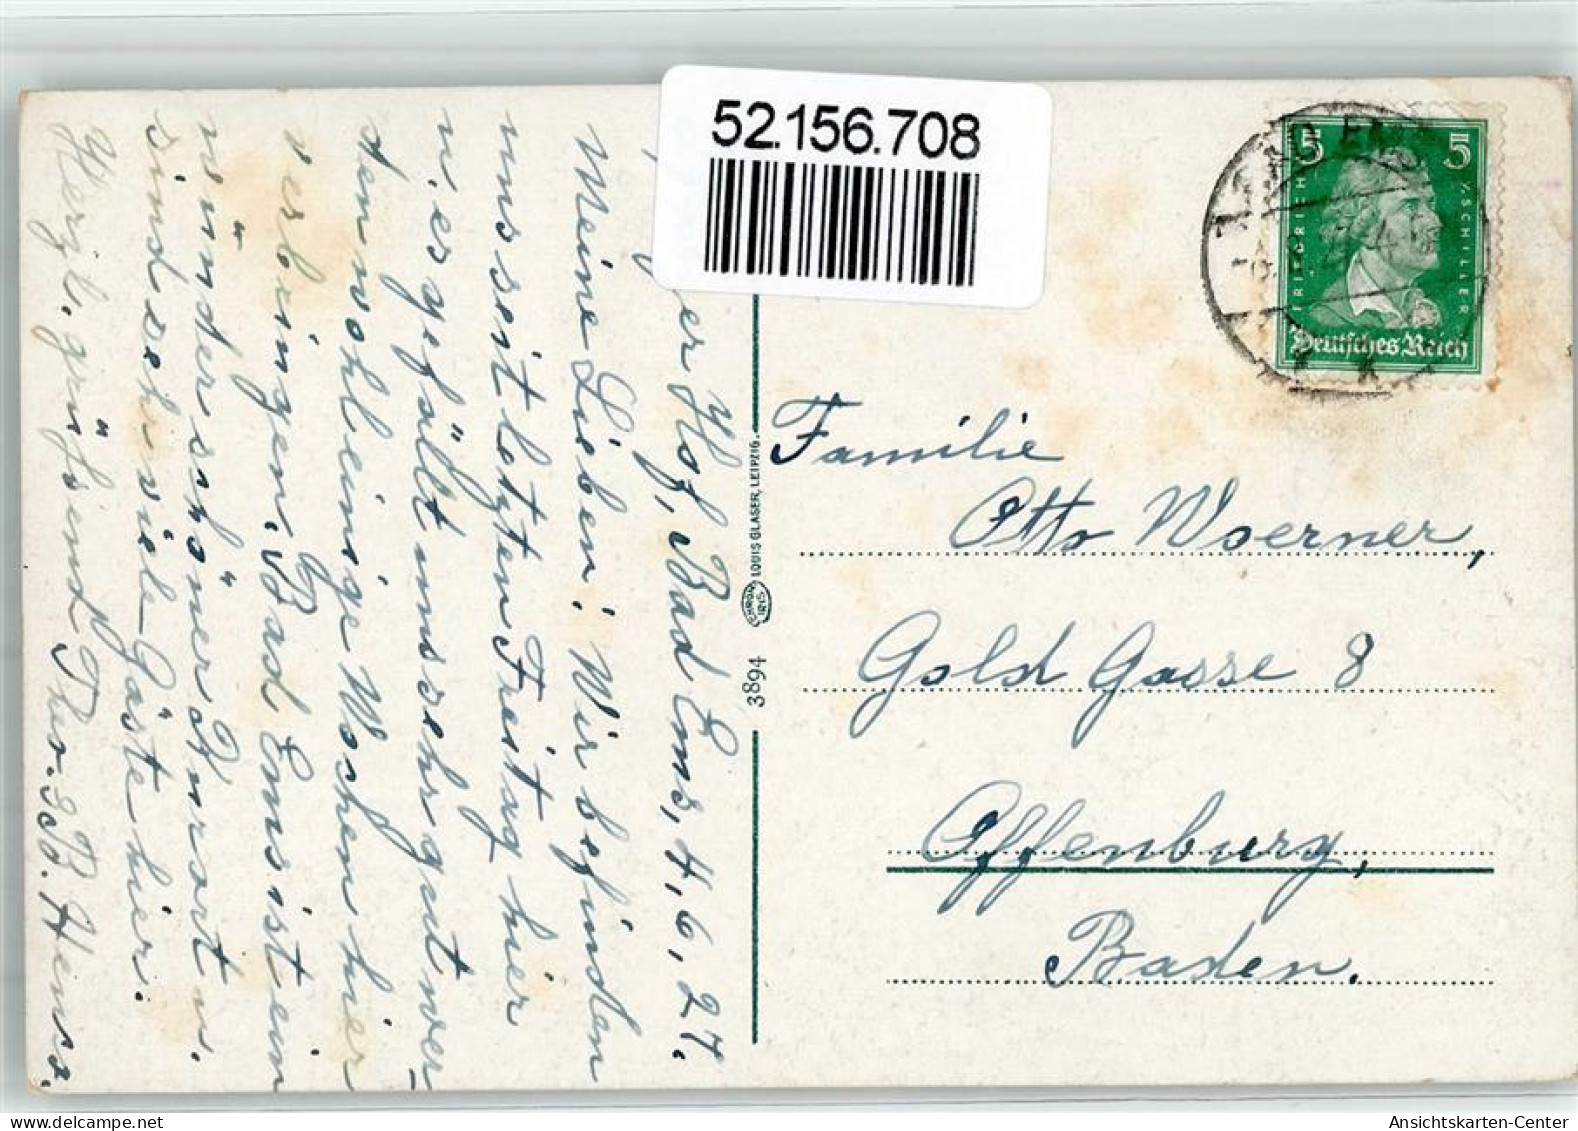 52.156.708
er Hof, Bad Ems, 4, 6, 27.
Meine Lieben! Wir befinden
uns seit letzten Freitag hier
u. es gefällt uns sehr gut, wer-
den wohl einige Wochen hier
verbringen. Bad Ems ist ein
wunderschöner Kurort u.
sind sehr viele Gäste hier.
Herzl. grüßend B. Heins.
LOUIS GLASER, LEIPZIG
CHROM IRIS
3894
5 5
FRIEDRICH V. SCHILLER
Deutsches Reich
Familie
Otto Woerner,
Gold Gasse 8
Offenburg,
Baden.
www.delcampe.net
Ansichtskarten-Center